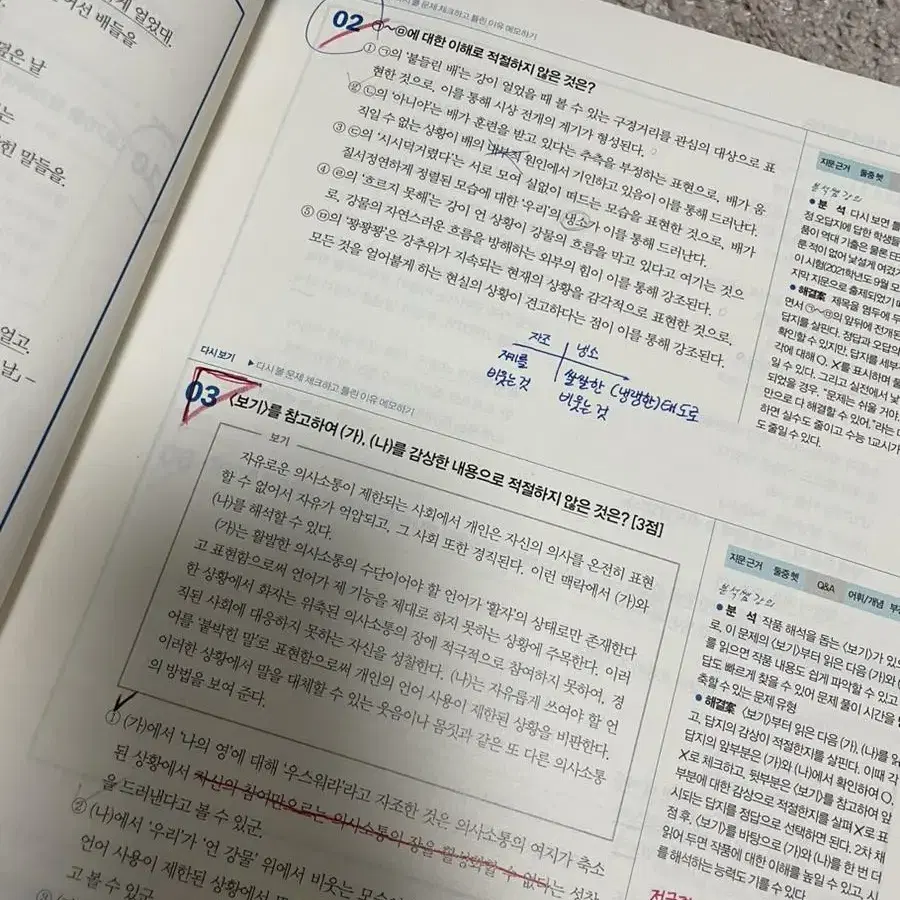 게 얼었대.
어선 배들을
은 날
는
힌 말들을.
얼고.
날, -
다시 볼 문제 체크하고 틀린 이유 메모하기
02 ㉠~㉤에 대한 이해로 적절하지 않은 것은?
① ㉠의 '붙들린 배'는 강이 얼었을 때 볼 수 있는 구경거리를 관심의 대상으로 표
현한 것으로, 이를 통해 시상 전개의 계기가 형성된다.
② ㉡의 '아니야'는 배가 훈련을 받고 있다는 추측을 부정하는 표현으로, 배가 움
직일 수 없는 상황이 배의 내부적 원인에서 기인하고 있음이 이를 통해 드러난다.
③ ㉢의 '시시덕거렸다'는 서로 모여 실없이 떠드는 모습을 표현한 것으로,
질서정연하게 정렬된 모습에 대한 '우리'의 냉소가 이를 통해 드러난다.
④ ㉣의 '흐르지 못해'는 강이 언 상황이 강물의 흐름을 막고 있다고 여기는 것으
로, 강물의 자연스러운 흐름을 방해하는 외부의 힘이 이를 통해 강조된다.
⑤ ㉤의 '꽝꽝꽝'은 강추위가 지속되는 현재의 상황을 감각적으로 표현한 것으로,
모든 것을 얼어붙게 하는 현실의 상황이 견고하다는 점이 이를 통해 강조된다.
자조 냉소
자기를 비웃는 것
쌀쌀한 (냉냉한) 태도로 비웃는 것
다시 보기 ▶ 다시 볼 문제 체크하고 틀린 이유 메모하기
03 <보기>를 참고하여 (가), (나)를 감상한 내용으로 적절하지 않은 것은? [3점]
보기
자유로운 의사소통이 제한되는 사회에서 개인은 자신의 의사를 온전히 표현
할 수 없어서 자유가 억압되고, 그 사회 또한 경직된다. 이런 맥락에서 (가)와
(나)를 해석할 수 있다.
(가)는 활발한 의사소통의 수단이어야 할 언어가 '활자'의 상태로만 존재한다
고 표현함으로써 언어가 제 기능을 제대로 하지 못하는 상황에 주목한다. 이러
한 상황에서 화자는 위축된 의사소통의 장에 적극적으로 참여하지 못하여, 경
직된 사회에 대응하지 못하는 자신을 성찰한다. (나)는 자유롭게 쓰여야 할 언
어를 '붙박힌 말'로 표현함으로써 개인의 언어 사용이 제한된 상황을 비판한다.
이러한 상황에서 말을 대체할 수 있는 웃음이나 몸짓과 같은 또 다른 의사소통
의 방법을 보여 준다.
① (가)에서 '나의 영'에 대해 '우스워라'라고 자조한 것은, 의사소통의 여지가 축소
된 상황에서 자신의 참여만으로는 의사소통의 장을 활성화할 수 없다는 성찰
을 드러낸다고 볼 수 있군.
② (나)에서 '우리'가 '언 강물' 위에서 비웃는 모습
언어 사용이 제한된 상황에서
고 볼 수 있군.
지문근거 둘중헷
분석쌤 강의
● 분 석 다시 보면 틀
정 오답지에 답한 학생들
품이 역대 기출은 물론 EB
룬 적이 없어 낯설게 여겼
이 시험(2021학년도 9월 모
지막 지문으로 출제되었기 때
● 해결案 제목을 염두에 두
면서 ㉠~㉤의 앞뒤에 전개된
답지를 살핀다. 정답과 오답의
확인할 수 있지만, 답지를 세부
각에 대해 O, X를 표시하며 풀
일 수 있다. 그리고 실전에서 낯
되었을 경우, "문제는 쉬울 거야.
만으로 다 해결할 수 있어."라는 마
하면 실수도 줄이고 수능 1교시가
도 줄일 수 있다.
지문근거 둘중헷 Q&A 어휘/개념 부
분석쌤 강의
● 분 석 작품 해석을 돕는 <보기>가 있으
로, 이 문제의 <보기>부터 읽은 다음 (가)와 (나)
를 읽으면 작품 내용도 쉽게 파악할 수 있고
답도 빠르게 찾을 수 있어 문제 풀이 시간을 단
축할 수 있는 문제 유형
● 해결案 <보기>부터 읽은 다음 (가), (나)를 읽
고, 답지의 감상이 적절한지를 살핀다. 이때 각
답지의 앞부분은 (가)와 (나)에서 확인하여 O,
X로 체크하고, 뒷부분은 <보기>를 참고하여 앞
부분에 대한 감상으로 적절한지를 살펴 X로 표
시되는 답지를 정답으로 선택하면 된다. 2차 채
점 후, <보기>를 바탕으로 (가)와 (나)를 한 번 더
읽어 두면 작품에 대한 이해를 높일 수 있고, 시
를 해석하는 능력도 기를 수 있다.